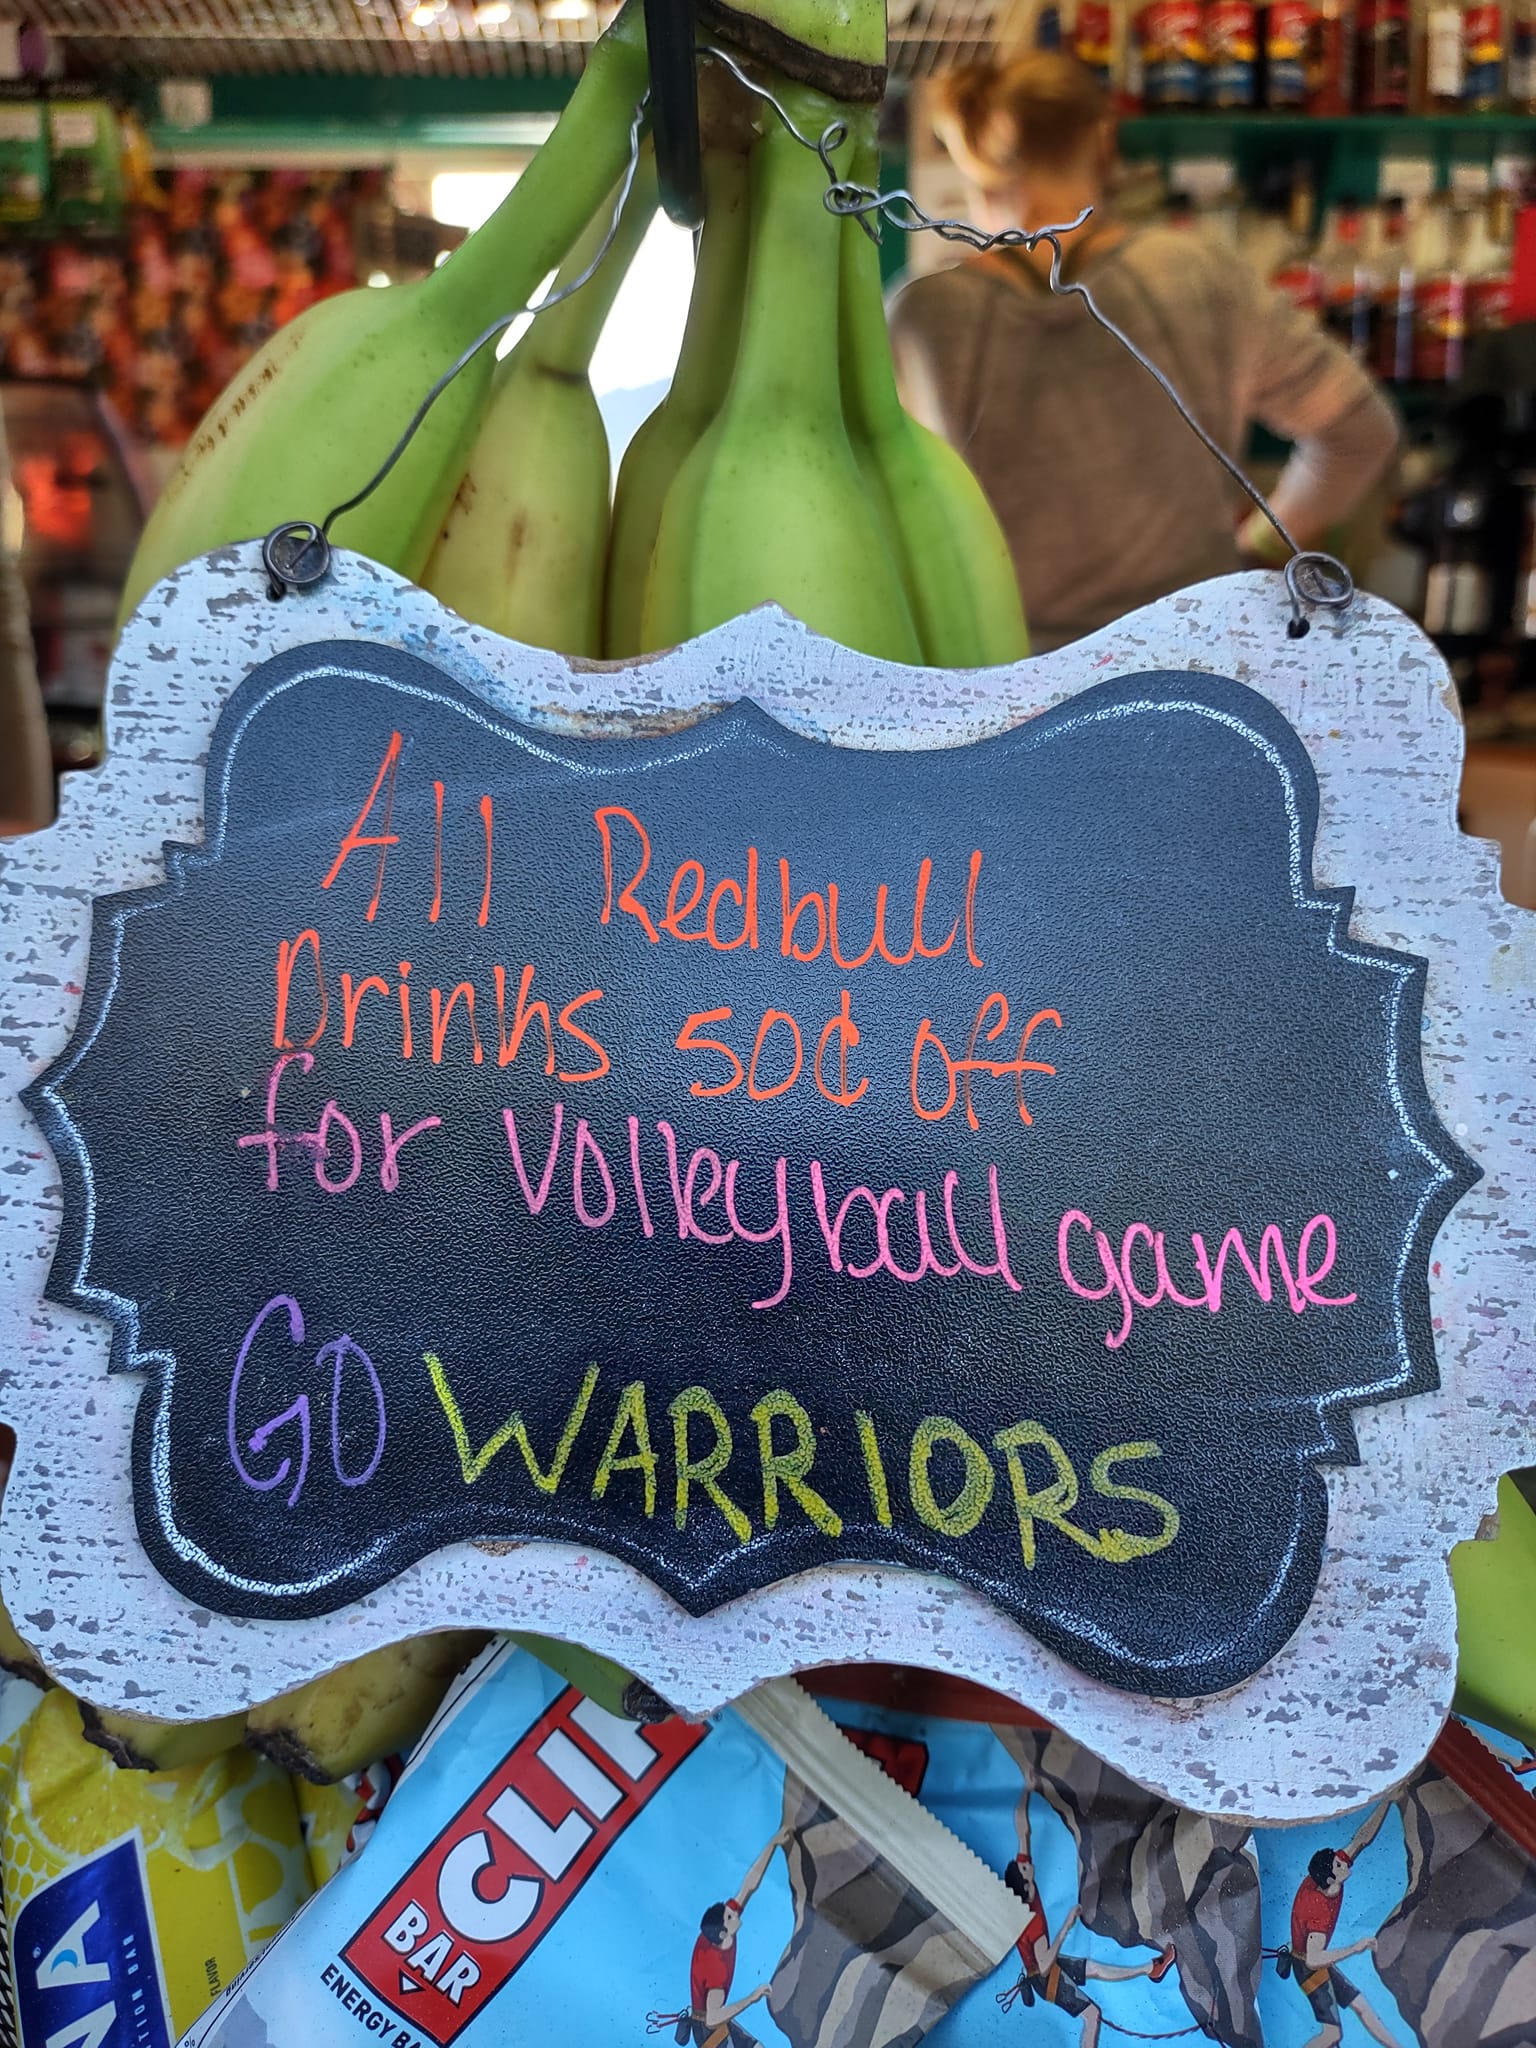 All Redbull
Drinks 50¢ off
for Volleyball game
GO WARRIORS
CLIF
BAR
ENERGY BA
NA
TION BAR
FLAVOR